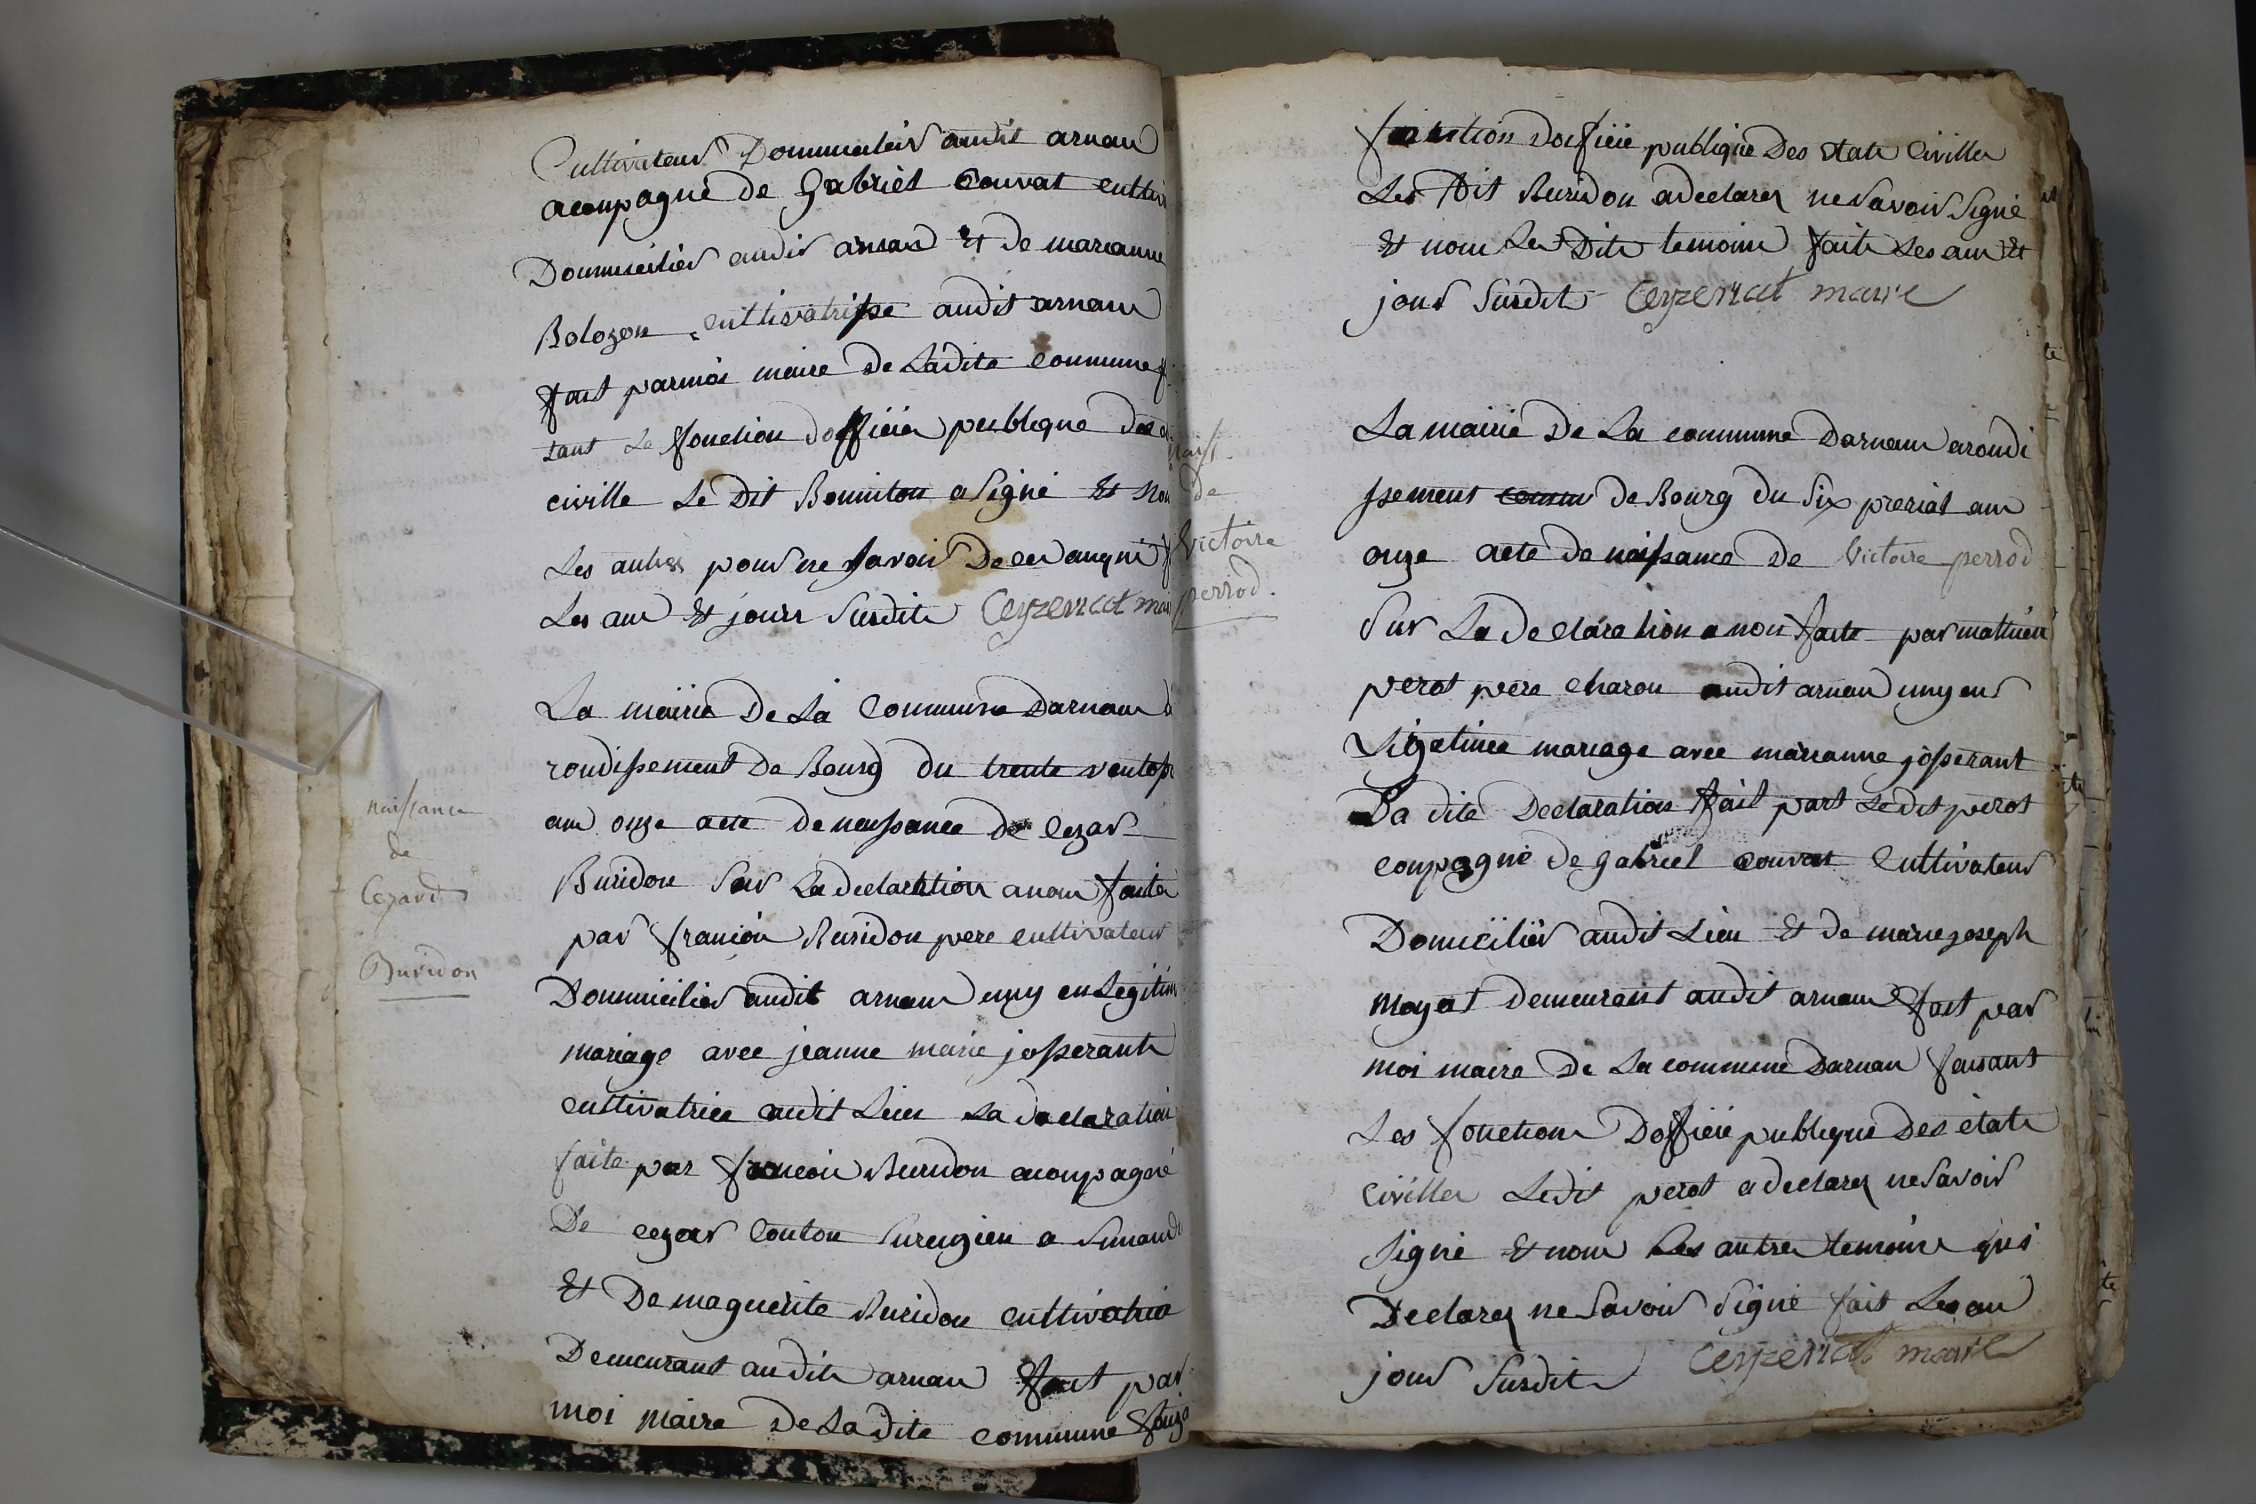 Cultivateur Dommicilier audit arnan
acompagné de Gabriel Couvat cultiv
Dommicilier audit arnan Et de marianne
Bolozon cultivatrisse audit arnans
fait parmoi maire de Ladite commune f
sant Le fonction dofficier publique des e
civille Le Dit Bonniton a Signé Et non
Les autres pour ne Savoir De ce anquri f
Les an Et jours Susdits Ceyzeriat mai
La mairie De La Commune Darnans a
rondissement De Bourg du trente ventose
an onze acte de naissance de Cezar
Buridon Sur La declaration a nous faite
par françois Buridon pere cultivateur
Dommicilier audit arnans uny en Legitim
mariage avec jeanne marie josserant
cultivatrice audit Lieu La declaration
faite par francois Buridon acompagné
De cezar Couton Surugien a Simand
Et De maguerite Buridon cultivatrice
Demeurant audit arnan fait par
moi maire De La dite commune faiza
naissance
de
Cezard
Buridon
fonction dofficie publique Des etats Civilles
Les Dit Buridon a declarez ne Savoir Signé
Et nom Les Dits temoins fait Les an Et
jour Susdit Ceyzeriat maire
La mairie De La commune Darnans arondi
ssement comm de Bourg du Six prerial an
onze acte de naissance de Victoire perrod
Sur La declaration a nous faite par mathieu
perot pere charon audit arnan uny en
Ligetimee mariage avec marianne josserant
La dite Declaration fait part Le dit perot
compagné de gabriel couvat Cultivateur
Domicilier audit Lieu Et de marie joseph
moyat demeurant audit arnans fait par
moi maire De La commune Darnan faisant
Les fonctions Dofficie publique Des états
Civilles Ledit perot a declarez ne Savoir
Signé Et nom Les autres temoins qui
Declarez ne Savoir Signé fait Les an
jour Susdits Ceyzeriat maire
naiss.
de
Victoire
perrod.